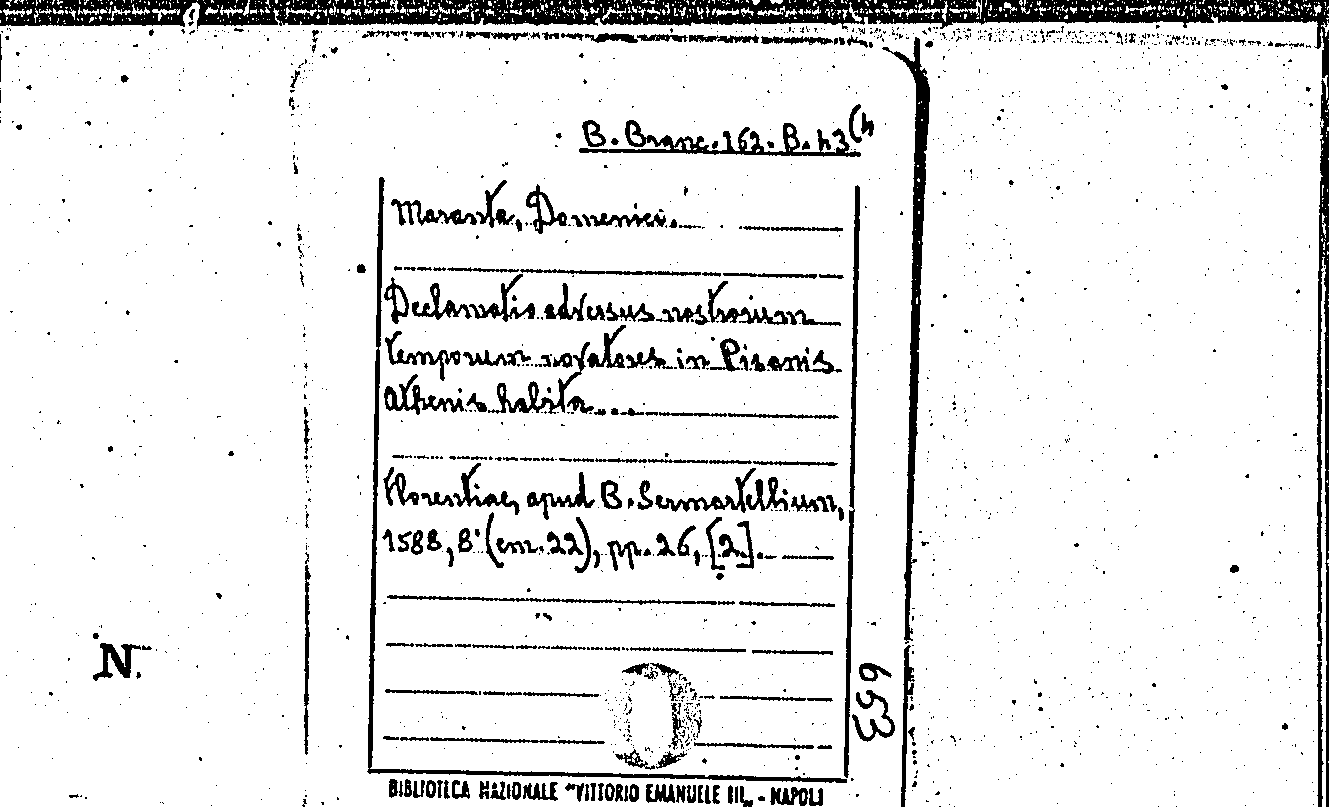 B. Branc. 162. B. 43(4
Maranta, Domenici.
Declamatio adversus nostrorum
temporum novatores in Pisanis
Athenis habita...
Florentiae, apud B. Sermartellium,
1588, 8° (cm. 22), pp. 26, [2].
N.
653
BIBLIOTECA NAZIONALE "VITTORIO EMANUELE III„ - NAPOLI